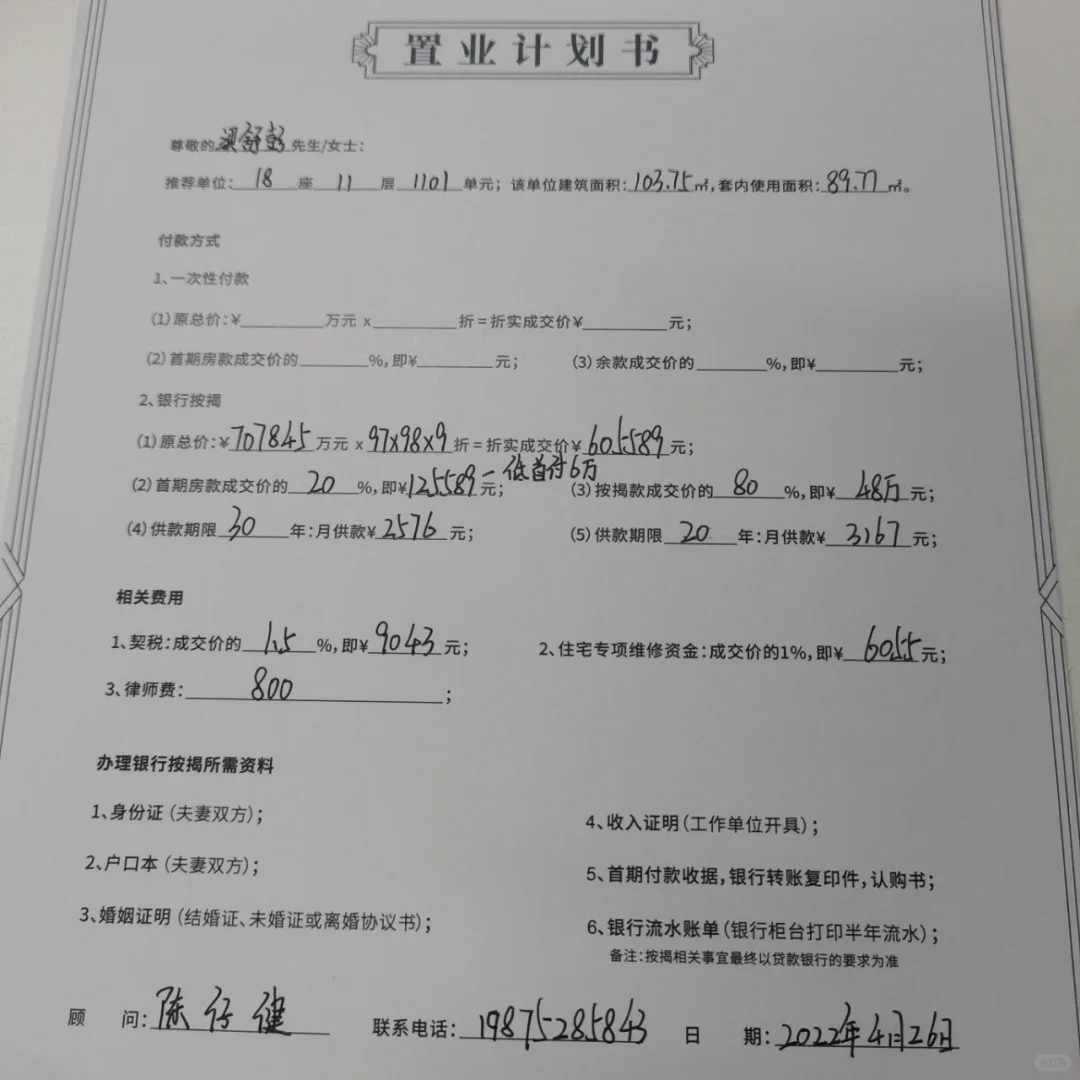 置业计划书
尊敬的梁舒彭先生/女士：
推荐单位：18座11层1101单元；该单位建筑面积：103.75㎡，套内使用面积：89.77㎡。
付款方式
1、一次性付款
(1)原总价：¥________万元 x________折＝折实成交价¥________元；
(2)首期房款成交价的________%，即¥________元； (3)余款成交价的________%，即¥________元；
2、银行按揭
(1)原总价：¥707845万元 x 97x98x9折＝折实成交价¥605589元；
(2)首期房款成交价的20%，即¥125589元；－低首付6万 (3)按揭款成交价的80%，即¥48万元；
(4)供款期限30年：月供款¥2576元； (5)供款期限20年：月供款¥3167元；
相关费用
1、契税：成交价的1.5%，即¥9043元； 2、住宅专项维修资金：成交价的1%，即¥6055元；
3、律师费：800；
办理银行按揭所需资料
1、身份证（夫妻双方）；
2、户口本（夫妻双方）；
3、婚姻证明（结婚证、未婚证或离婚协议书）；
4、收入证明（工作单位开具）；
5、首期付款收据，银行转账复印件，认购书；
6、银行流水账单（银行柜台打印半年流水）；
备注：按揭相关事宜最终以贷款银行的要求为准
顾 问：陈仔健 联系电话：19875285843 日 期：2022年4月26日